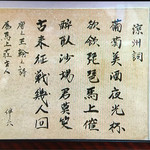 涼州詞
葡萄美酒夜光杯
欲飲琵琶馬上催
醉臥沙場君莫笑
古来征戰幾人回
唐王翰詩